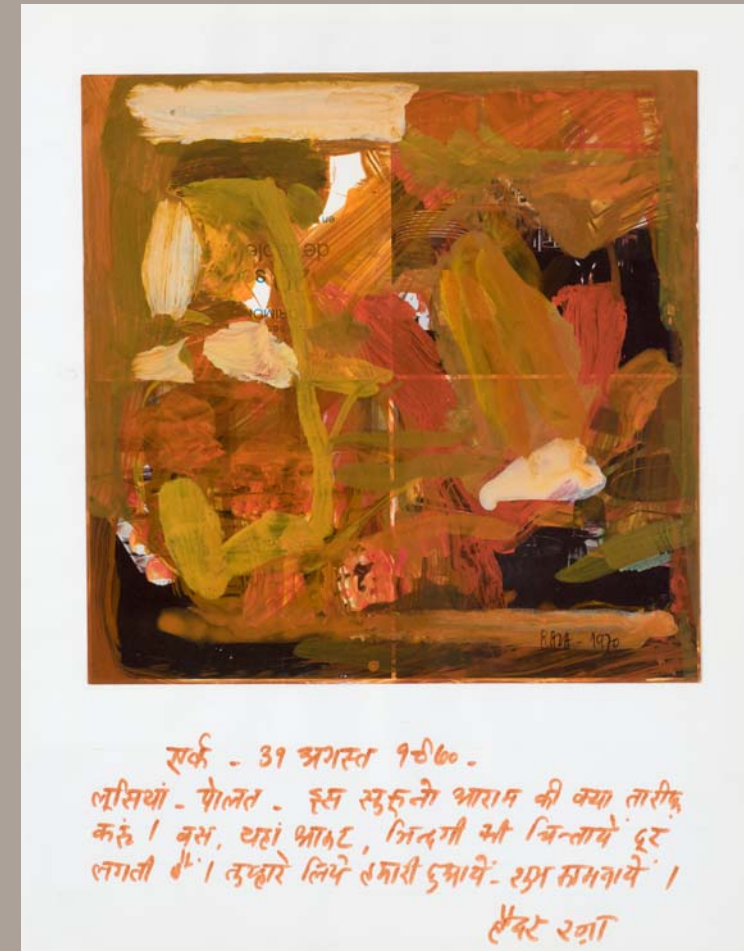 de
RAZA - 1970
एर्क - ३१ अगस्त १९७०.
लूसियां - पोलत - इस सुकूनो आराम की क्या तारीफ़
करूं । बस, यहां आकर, ज़िन्दगी की चिन्तायें दूर
लगती हैं । तुम्हारे लिये हमारी दुआयें - शुभ कामनायें ।
हैदर रज़ा